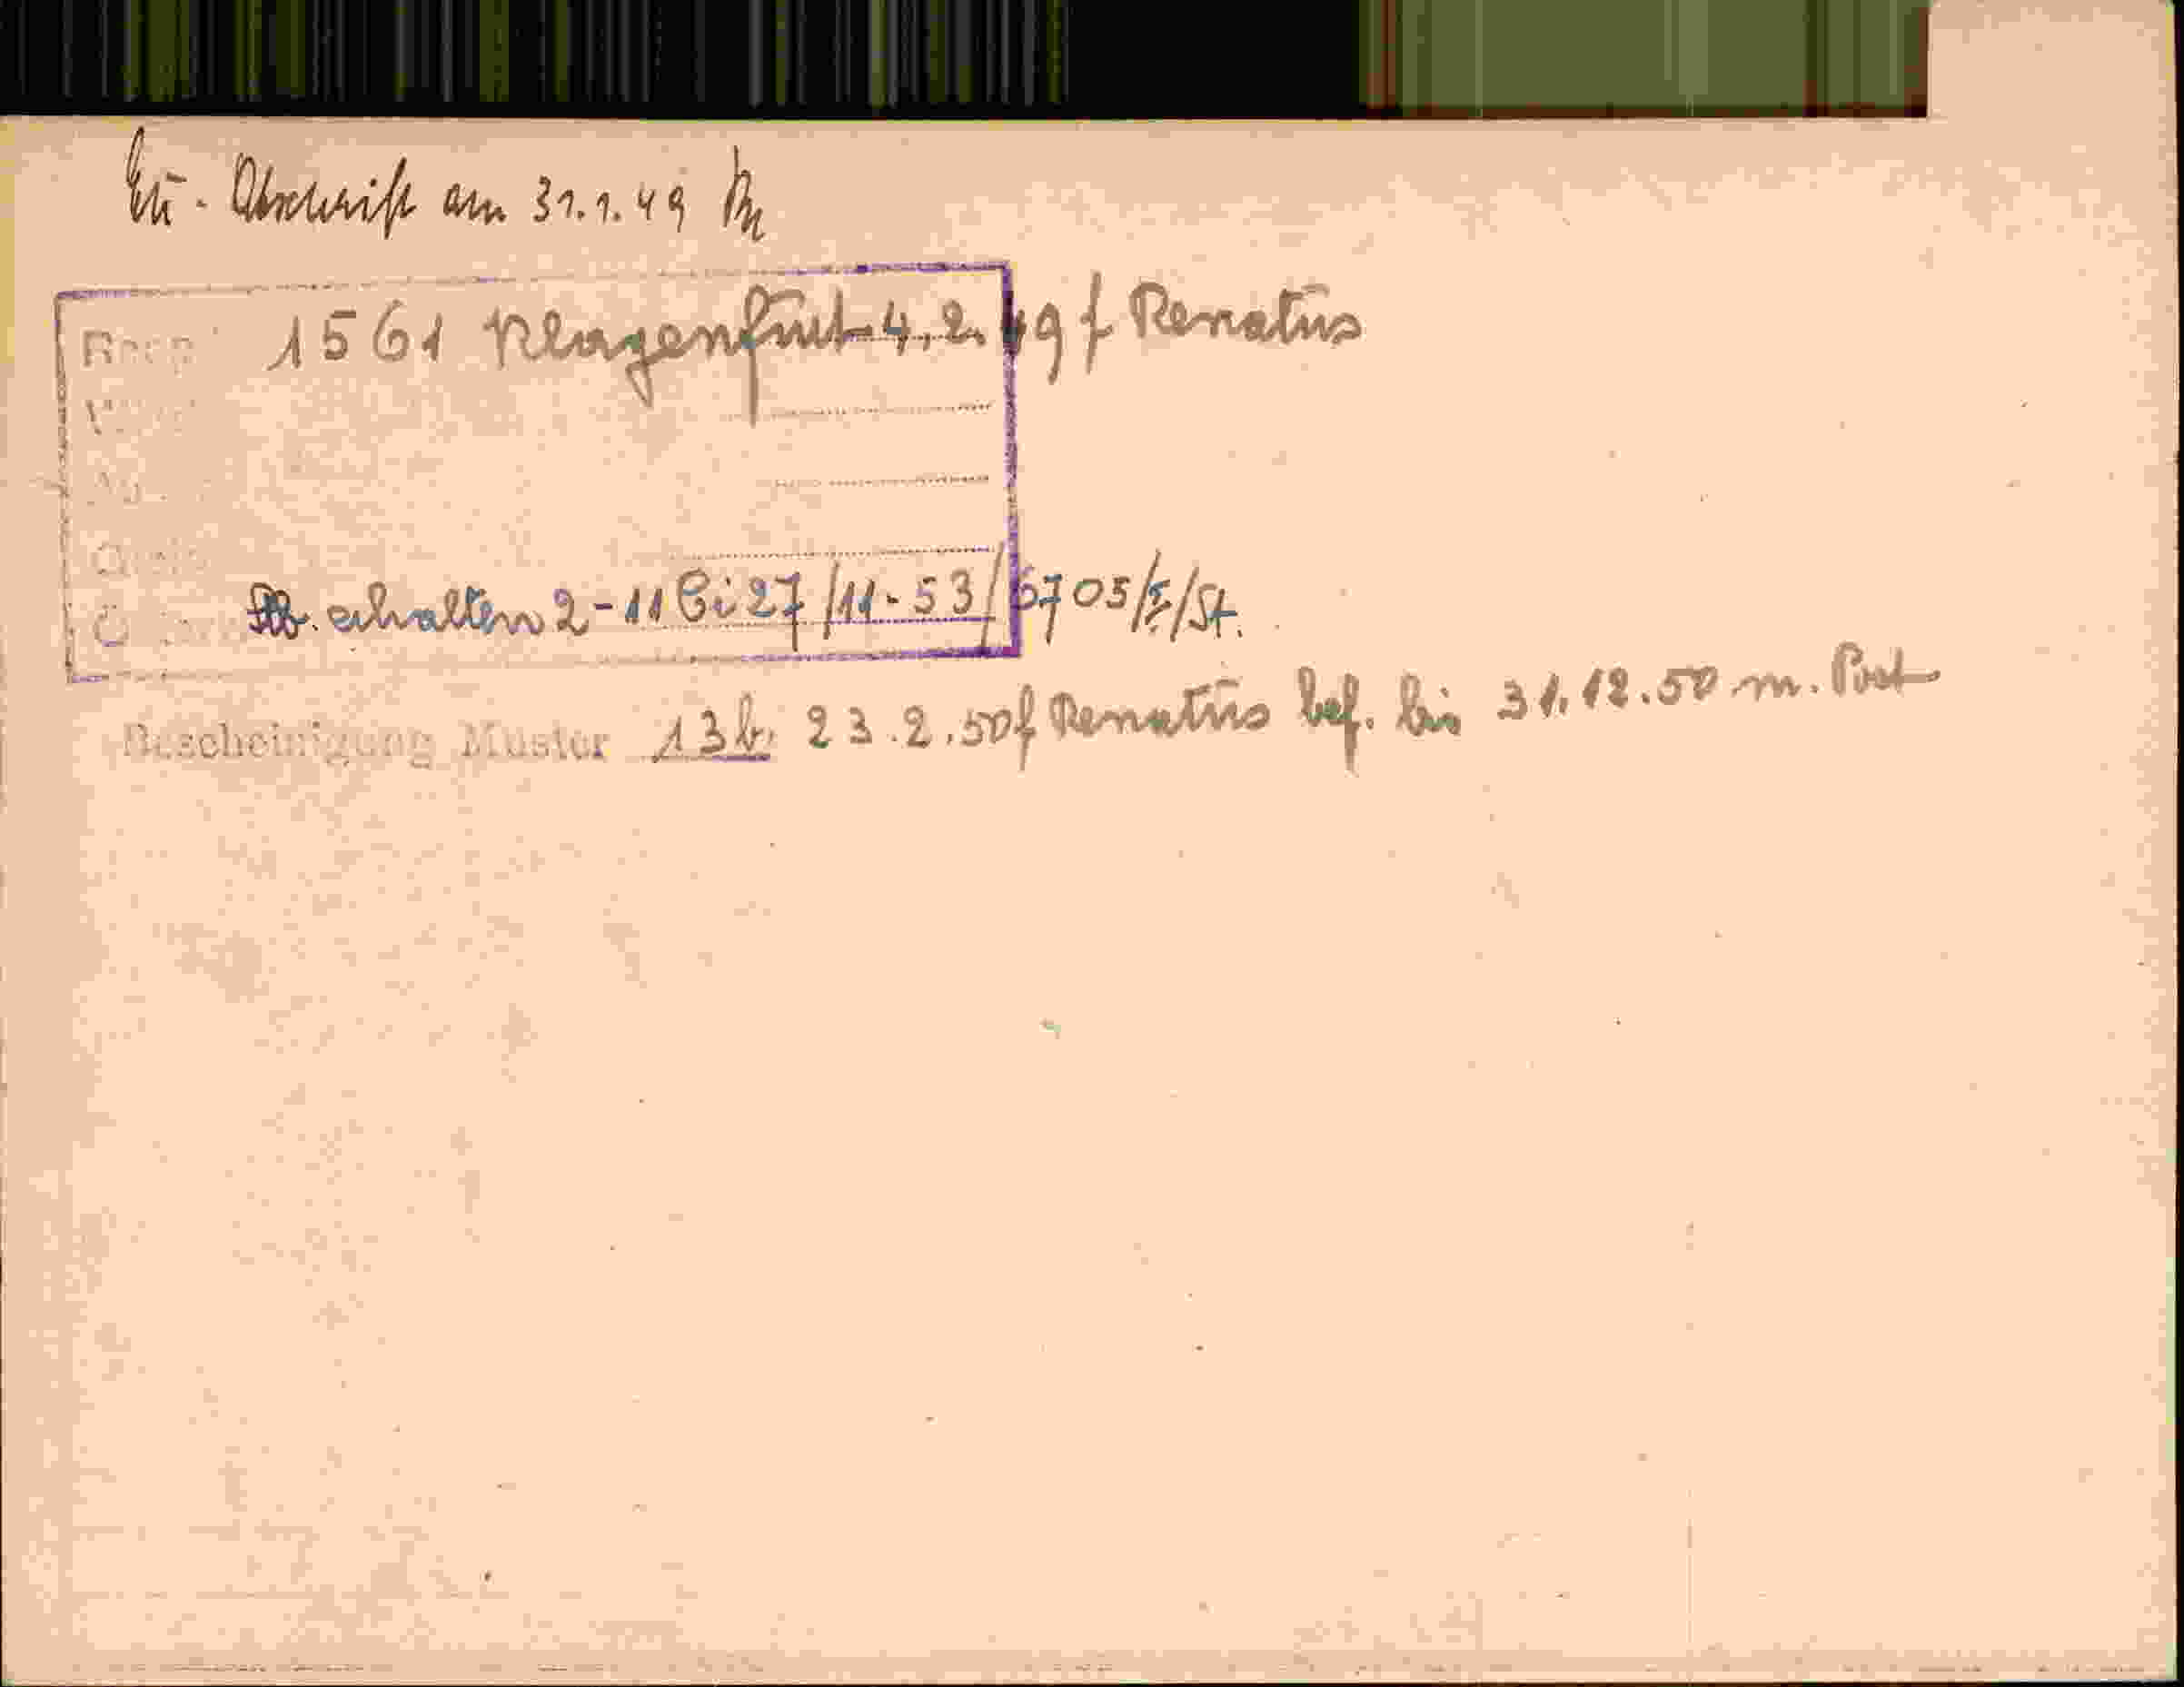 Abschrift am 31.1.49
1561 Klagenfurt 4.2.49 f Renatus
erhalten 2-11 Bi 27/11-53/6705/I/St.
Bescheinigung Muster 13b, 23.2.50 f Renatus bef. bis 31.12.50 m. Post